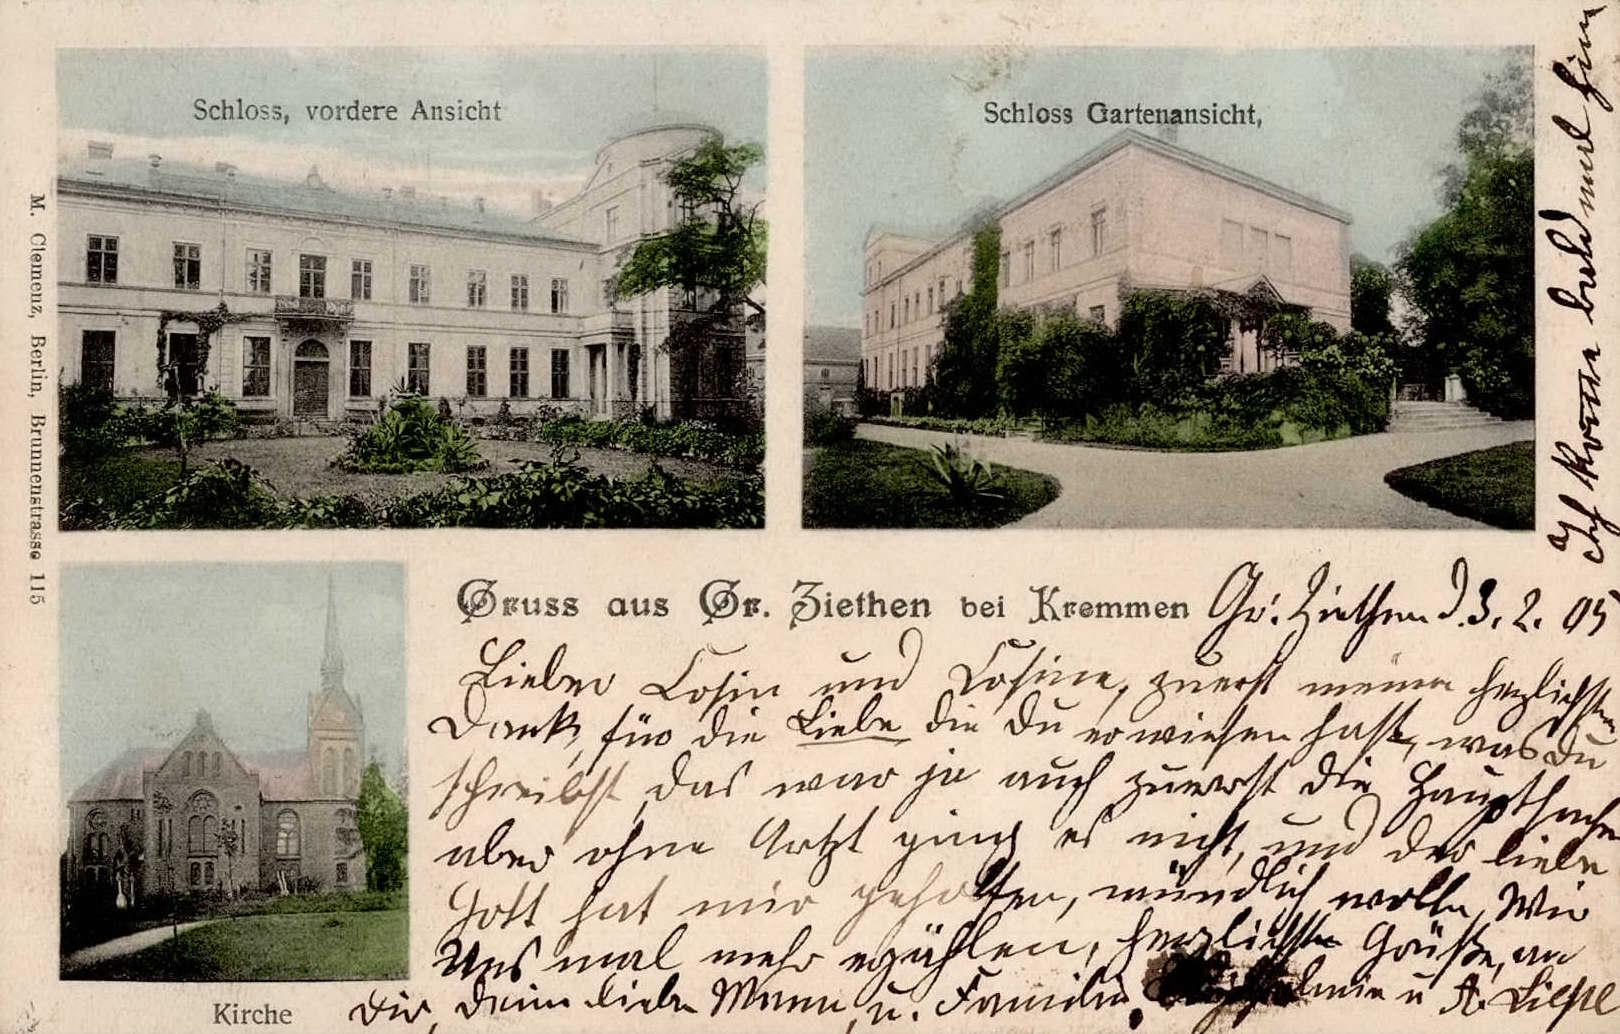 Schloss, vordere Ansicht
Schloss Gartenansicht,
M. Clemenz, Berlin, Brunnenstrasse 115
Gruss aus Gr. Ziethen bei Kremmen
Gr. Ziethen d. 3. 2. 05
Lieber Cosin und Cosine, zuerst meinen herzlichsten
Dank, für die Liebe die Du erwiesen hast, was Du
schreibst, das war ja auch zuerst die Hauptsache
aber ohne Artzt ging es nicht, und der liebe
Gott hat mir geholfen, mündlich wolln Wir
Uns mal mehr erzählen, herzlichste Grüße, an
Dir, Deinen lieben Mann, u. Familie, u A. Liesel
Ich komme bald mal hin
Kirche